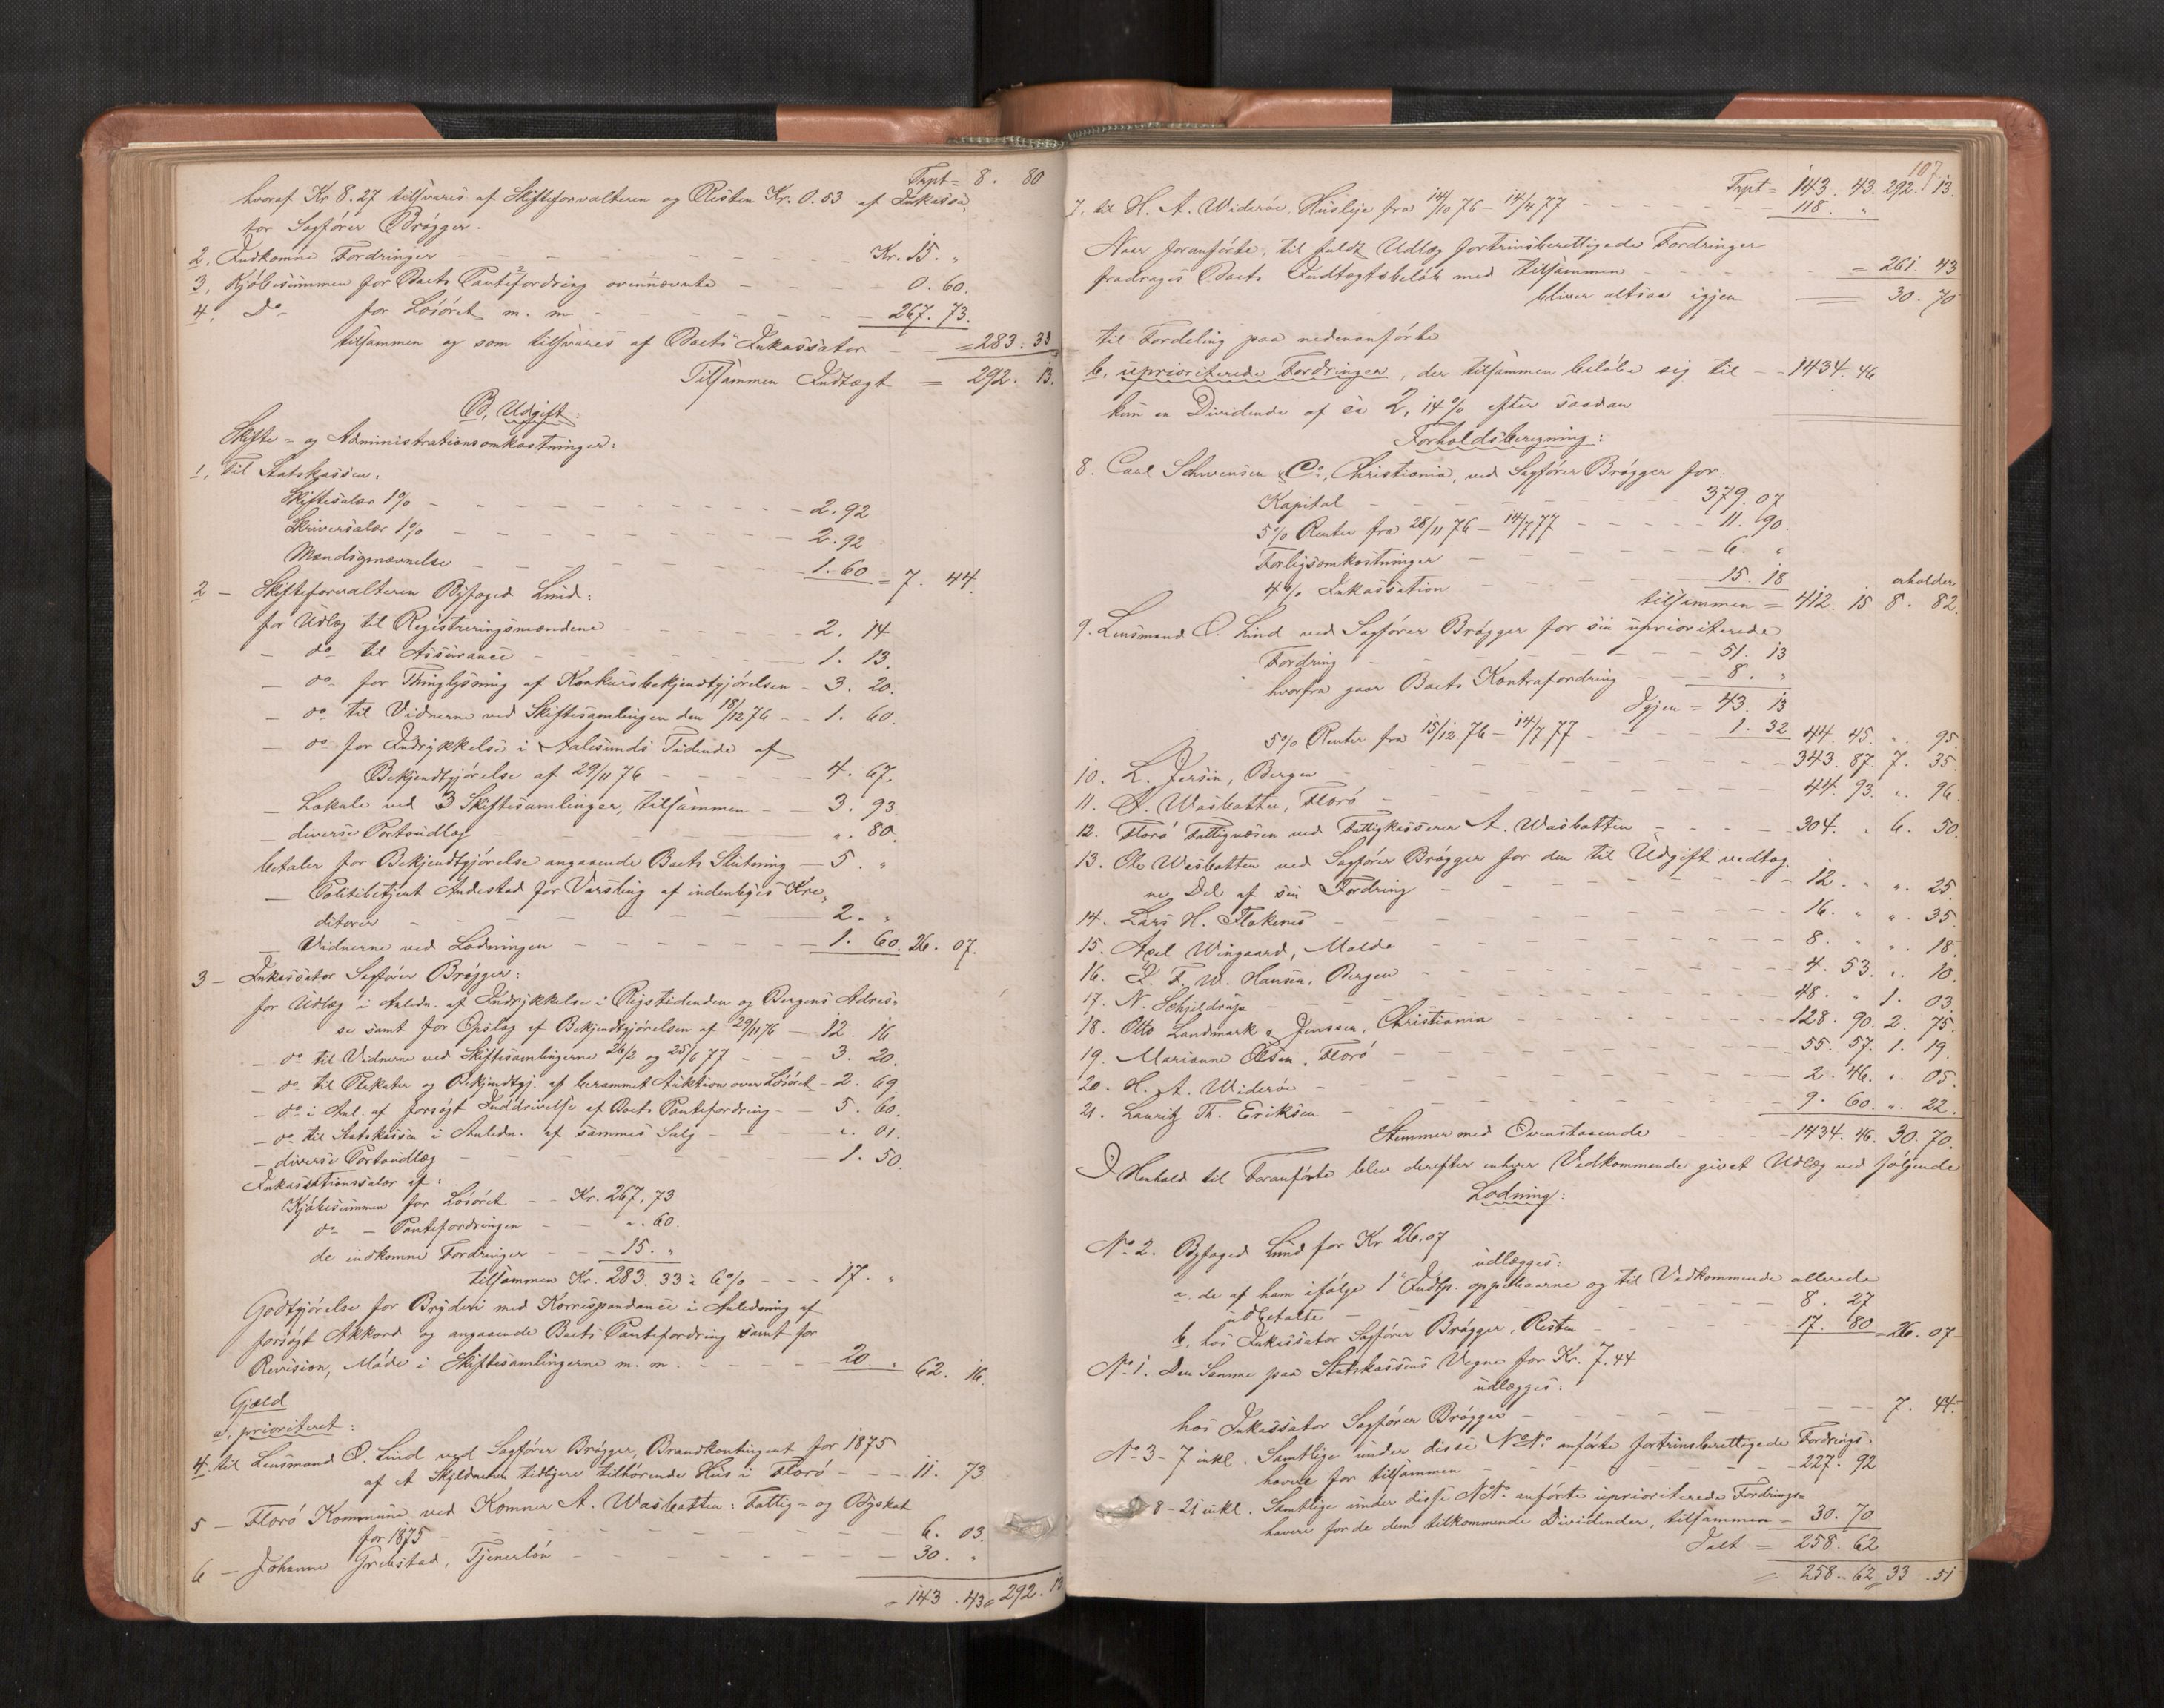 Trpt = 8. 80
hvoraf Kr 8.27 tilsvares af Skifteforvalteren og Resten Kr. 0.53 af Inkassa-
tor Sagfører Brøgger.
2. Indkomne Fordringer - - - Kr. 15. "
3. Kjøbesummen for Boets Pantefordring ovennævnte - - - 0. 60.
4. Do for Løsøret m. m. - - - 267. 73.
tilsammen og som tilsvares af Boets Inkassator - - = 283. 33
Tilsammen Indtægt = 292. 13.
B, Udgift:
Skifte- og Administrationsomkostninger:
1, Til Statskassen:
Skiftesalær 1% - - - 2. 92
Skriversalær 1% - - - 2. 92
Mændsopnævnelse - - - 1. 60 = 7. 44.
2 - Skifteforvalteren Byfoged Lund:
for Udlæg til Registreringsmændene - - - 2. 14
- do til Assurance - - - 1. 13.
- do for Thinglysning af Konkursbekjendtgjørelsen - 3. 20.
- do til Vidnerne ved Skiftesamlingen den 18/12 76 - - 1. 60.
- do for Indrykkelse i Aalesunds Tidende af
Bekjendtgjørelse af 29/11 76 - - - 4. 67.
- Lokale ved 3 Skiftesamlinger, tilsammen - - 3. 93.
- diverse Portoudlæg - - - ". 80.
betaler for Bekjendtgjørelse angaaende Boets Slutning - 5. "
- Politibetjent Andestad for Varsling af indenbyes Kre-
ditorer - - - 2. "
- Vidnerne ved Lodningen - - - 1. 60. 26. 07.
3 - Inkassator Sagfører Brøgger:
for Udlæg i Anledn. af Indrykkelse i Rigstidenden og Bergens Adres-
se samt for Opslag af Bekjendtgjørelsen af 29/11 76 - 12. 16
- do til Vidnerne ved Skiftesamlingerne 26/2 og 25/6 77 - - - 3. 20.
- do til Plakater og Bekjendtgj. af berammet Auktion over Løsøret - 2. 69
- do i Anl. af forsøgt Inddrivelse af Boets Pantefordring - - 5. 60.
- do til Statskassen i Anledn. af sammes Salg - - - ". 01.
- diverse Portoudlæg - - - 1. 50.
Inkassationssalær af:
Kjøbesummen for Løsøret - - Kr. 267, 73
do - Pantefordringen - - ". 60.
de indkomne Fordringer - - 15. "
tilsammen Kr. 283. 33 à 6% - - - 17. "
Godtgjørelse for Bryderi med Korrespondance i Anledning af
forsøgt Akkord og angaaende Boets Pantefordring samt for
Revision, Møde i Skiftesamlingerne m. m. - - - 20. " 62. 16.
Gjæld
a, prioriteret:
4. til Lensmand O. Lind ved Sagfører Brøgger, Brandkontingent for 1875
af et Skyldneren tidligere tilhørende Hus i Florø - - - 11. 73
5 - Florø Kommune ved Kemner A. Wasbotten: Fattig- og Byskat
for 1875 - - - 6. 03.
6 - Johanne Grebstad, Tjenerløn - - - 30. "
= 143. 43 = 292. 13
107
Trpt = 143. 43. 292. 13.
7, til H. A. Widerøe, Husleje fra 14/10 76 - 14/4 77 - - - 118. "
Naar foranførte, til fuldt Udlæg fortrinsberettigede Fordringer
fradrages Boets Indtægtsbeløb med tilsammen - - - = 261. 43
bliver altsaa igjen - - - 30. 70
til Fordeling paa nedenanførte
b. uprioriterede Fordringer, der tilsammen beløbe sig til - - 1434. 46
kun en Dividende af ca 2, 14% efter saadan
Forholdsberegning:
8. Carl Schwensen & Co, Christiania, ved Sagfører Brøgger for:
Kapital - - - 379. 07
5% Renter fra 28/11 76 - 14/7 77 - - - 11. 90.
Forligsomkostninger - - - 6. "
4% Inkassation - - - 15. 18 erholder
tilsammen = 412. 15 8. 82.
9. Lensmand O. Lind ved Sagfører Brøgger for sin uprioriterede
Fordring - - - 51. 13
hvorfra gaar Boets Kontrafordring - - 8. "
Igjen = 43. 13
5% Renter fra 15/12 76 - 14/7 77 - - - 1. 32 44. 45. ". 95.
10. L. Jersin, Bergen - - - 343. 87. 7. 35.
11. A. Wasbotten, Florø - - - 44. 93. ". 96.
12. Florø Fattigvæsen ved Fattigkasserer A. Wasbotten - - - 304. " 6. 50.
13. Ole Wasbotten ved Sagfører Brøgger for den til Udgift vedtag-
ne Del af sin Fordring - - - 12. " ". 25.
14. Lars H. Flokenes - - - 16. " ". 35.
15. Axel Wingaard, Molde - - - 8. " ". 18.
16. L. F. W. Hansen, Bergen - - - 4. 53. ". 10.
17. N. Schjeldrup - - - 48. " 1. 03.
18. Otto Landmark & Jenssen, Christiania - - - 128. 90. 2. 75.
19. Marianne Olsen, Florø - - - 55. 57. 1. 19.
20. H. A. Widerøe - - - 2. 46. ". 05.
21. Lauritz Th. Eriksen - - - 9. 60. ". 22.
Stemmer med Ovenstaaende - - - 1434. 46. 30. 70.
I Henhold til Foranførte blev derefter enhver Vedkommende givet Udlæg ved følgende
Lodning:
No 2. Byfoged Lund for Kr 26. 07
udlægges:
a. de af ham ifølge 1ste Indtp. oppebaarne og til Vedkommende allerede
udbetalte - - - 8. 27
b. hos Inkassator Sagfører Brøgger, Resten - - - 17. 80 = 26. 07
No 1. Den Samme paa Statskassens Vegne for Kr. 7. 44
udlægges:
hos Inkassator Sagfører Brøgger - - - 7. 44.
No 3 - 7 inkl. Samtlige under disse NoNo anførte fortrinsberettigede Fordrings-
havere for tilsammen - - - 227. 92
8 - 21 inkl. Samtlige under disse NoNo anførte uprioriterede Fordrings-
havere for de dem tilkommende Dividender, tilsammen = 30. 70
Ialt = 258. 62
= 258. 62 = 33. 51